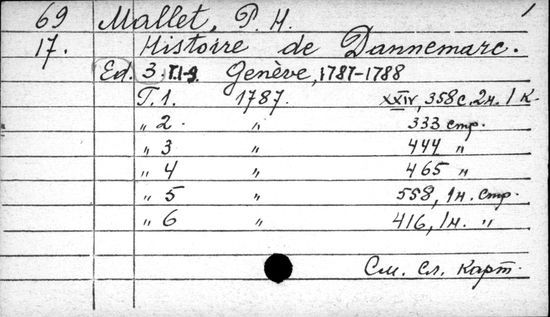 69 Mallet, P. H. 1
17. Histoire de Dannemarc.
Ed. 3 T.1-9. Genève, 1787-1788
T. 1. 1787. XXIV, 358 с. 2н. 1 к.
„ 2 . „ 333 стр.
„ 3 „ 444 „
„ 4 „ 465 „
„ 5 „ 558, 1н. стр.
„ 6 „ 416, 1н. „
См. сл. карт.